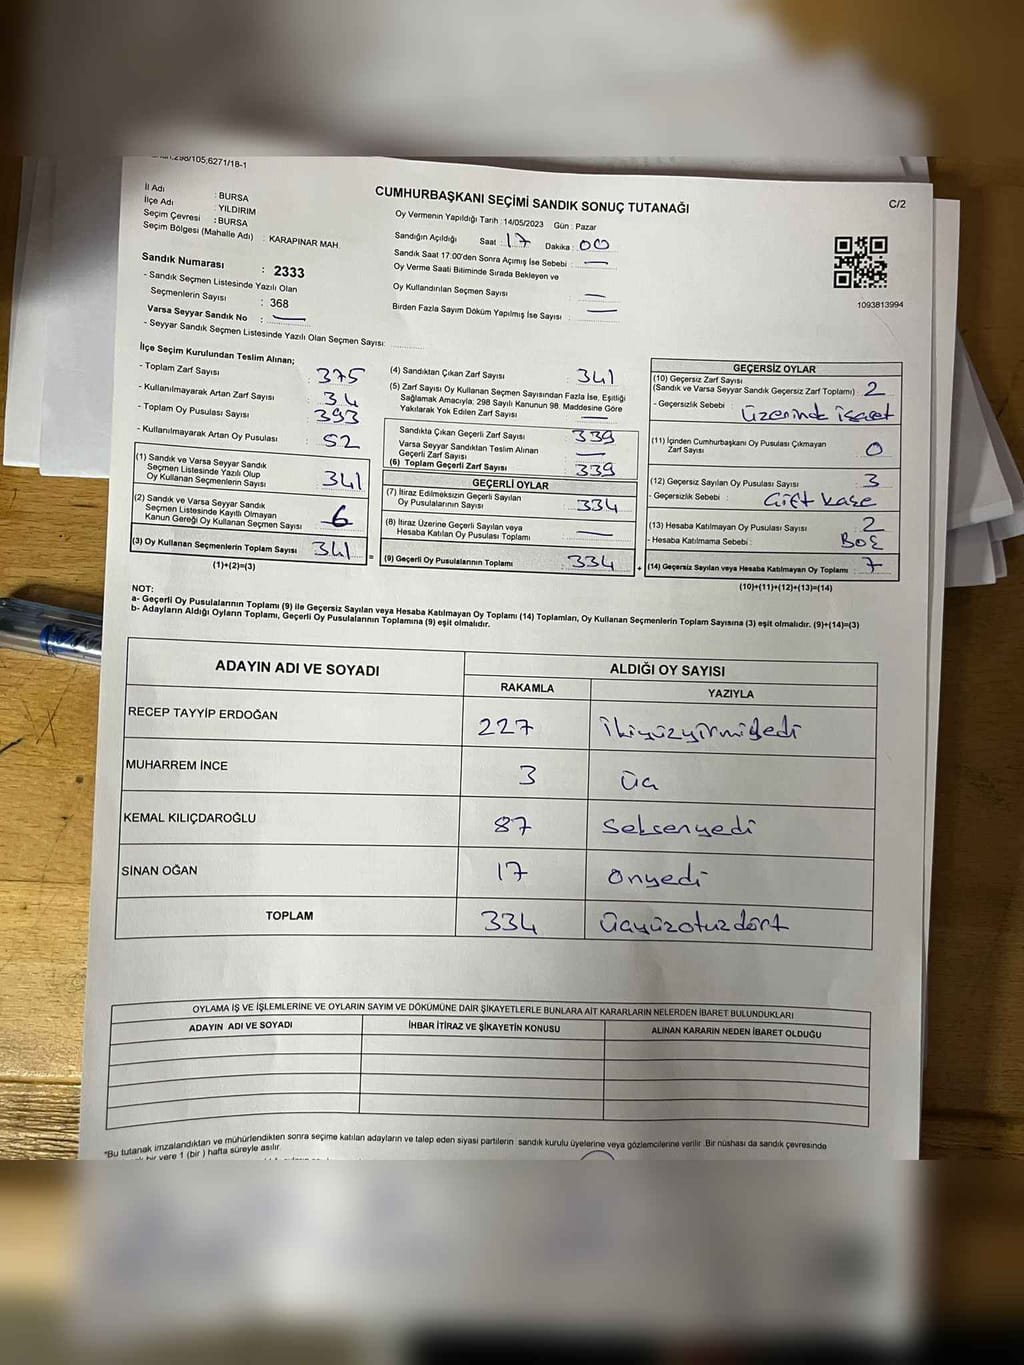 298/105;6271/18-1
CUMHURBAŞKANI SEÇİMİ SANDIK SONUÇ TUTANAĞI
C/2
İl Adı : BURSA
İlçe Adı : YILDIRIM
Seçim Çevresi : BURSA
Seçim Bölgesi (Mahalle Adı) : KARAPINAR MAH.
Sandık Numarası : 2333
- Sandık Seçmen Listesinde Yazılı Olan
Seçmenlerin Sayısı : 368
Varsa Seyyar Sandık No : —
- Seyyar Sandık Seçmen Listesinde Yazılı Olan Seçmen Sayısı:
Oy Vermenin Yapıldığı Tarih : 14/05/2023 Gün : Pazar
Sandığın Açıldığı Saat : 17 Dakika : 00
Sandık Saat 17:00'den Sonra Açımış İse Sebebi : —
Oy Verme Saati Bitiminde Sırada Bekleyen ve
Oy Kullandırılan Seçmen Sayısı : —
Birden Fazla Sayım Döküm Yapılmış İse Sayısı : —
1093813994
İlçe Seçim Kurulundan Teslim Alınan;
- Toplam Zarf Sayısı : 375
- Kullanılmayarak Artan Zarf Sayısı : 34
- Toplam Oy Pusulası Sayısı : 393
- Kullanılmayarak Artan Oy Pusulası : 52
(1) Sandık ve Varsa Seyyar Sandık
Seçmen Listesinde Yazılı Olup
Oy Kullanan Seçmenlerin Sayısı 341
(2) Sandık ve Varsa Seyyar Sandık
Seçmen Listesinde Kayıtlı Olmayan
Kanun Gereği Oy Kullanan Seçmen Sayısı 6
(3) Oy Kullanan Seçmenlerin Toplam Sayısı 341
(1)+(2)=(3)
=
(4) Sandıktan Çıkan Zarf Sayısı : 341
(5) Zarf Sayısı Oy Kullanan Seçmen Sayısından Fazla İse, Eşitliği
Sağlamak Amacıyla; 298 Sayılı Kanunun 98. Maddesine Göre
Yakılarak Yok Edilen Zarf Sayısı : —
Sandıkta Çıkan Geçerli Zarf Sayısı : 339
Varsa Seyyar Sandıktan Teslim Alınan
Geçerli Zarf Sayısı : —
(6) Toplam Geçerli Zarf Sayısı : 339
GEÇERLİ OYLAR
(7) İtiraz Edilmeksizin Geçerli Sayılan
Oy Pusulalarının Sayısı : 334
(8) İtiraz Üzerine Geçerli Sayılan veya
Hesaba Katılan Oy Pusulası Toplamı : —
(9) Geçerli Oy Pusulalarının Toplamı : 334
+
GEÇERSİZ OYLAR
(10) Geçersiz Zarf Sayısı
(Sandık ve Varsa Seyyar Sandık Geçersiz Zarf Toplamı) : 2
- Geçersizlik Sebebi : üzerinde işaret
(11) İçinden Cumhurbaşkanı Oy Pusulası Çıkmayan
Zarf Sayısı : 0
(12) Geçersiz Sayılan Oy Pusulası Sayısı : 3
- Geçersizlik Sebebi : Çift kaşe
(13) Hesaba Katılmayan Oy Pusulası Sayısı : 2
- Hesaba Katılmama Sebebi : BOŞ
(14) Geçersiz Sayılan veya Hesaba Katılmayan Oy Toplamı : 7
(10)+(11)+(12)+(13)=(14)
NOT:
a- Geçerli Oy Pusulalarının Toplamı (9) ile Geçersiz Sayılan veya Hesaba Katılmayan Oy Toplamı (14) Toplamları, Oy Kullanan Seçmenlerin Toplam Sayısına (3) eşit olmalıdır. (9)+(14)=(3)
b- Adayların Aldığı Oyların Toplamı, Geçerli Oy Pusulalarının Toplamına (9) eşit olmalıdır.
ADAYIN ADI VE SOYADI ALDIĞI OY SAYISI
RAKAMLA YAZIYLA
RECEP TAYYİP ERDOĞAN 227 ikiyüzyirmiyedi
MUHARREM İNCE 3 üç
KEMAL KILIÇDAROĞLU 87 Seksenyedi
SİNAN OĞAN 17 Onyedi
TOPLAM 334 üçyüzotuzdört
OYLAMA İŞ VE İŞLEMLERİNE VE OYLARIN SAYIM VE DÖKÜMÜNE DAİR ŞİKAYETLERLE BUNLARA AİT KARARLARIN NELERDEN İBARET BULUNDUKLARI
ADAYIN ADI VE SOYADI İHBAR İTİRAZ VE ŞİKAYETİN KONUSU ALINAN KARARIN NEDEN İBARET OLDUĞU
*Bu tutanak imzalandıktan ve mühürlendikten sonra seçime katılan adayların ve talep eden siyasi partilerin sandık kurulu üyelerine veya gözlemcilerine verilir. Bir nüshası da sandık çevresinde
bir yere 1 (bir ) hafta süreyle asılır.